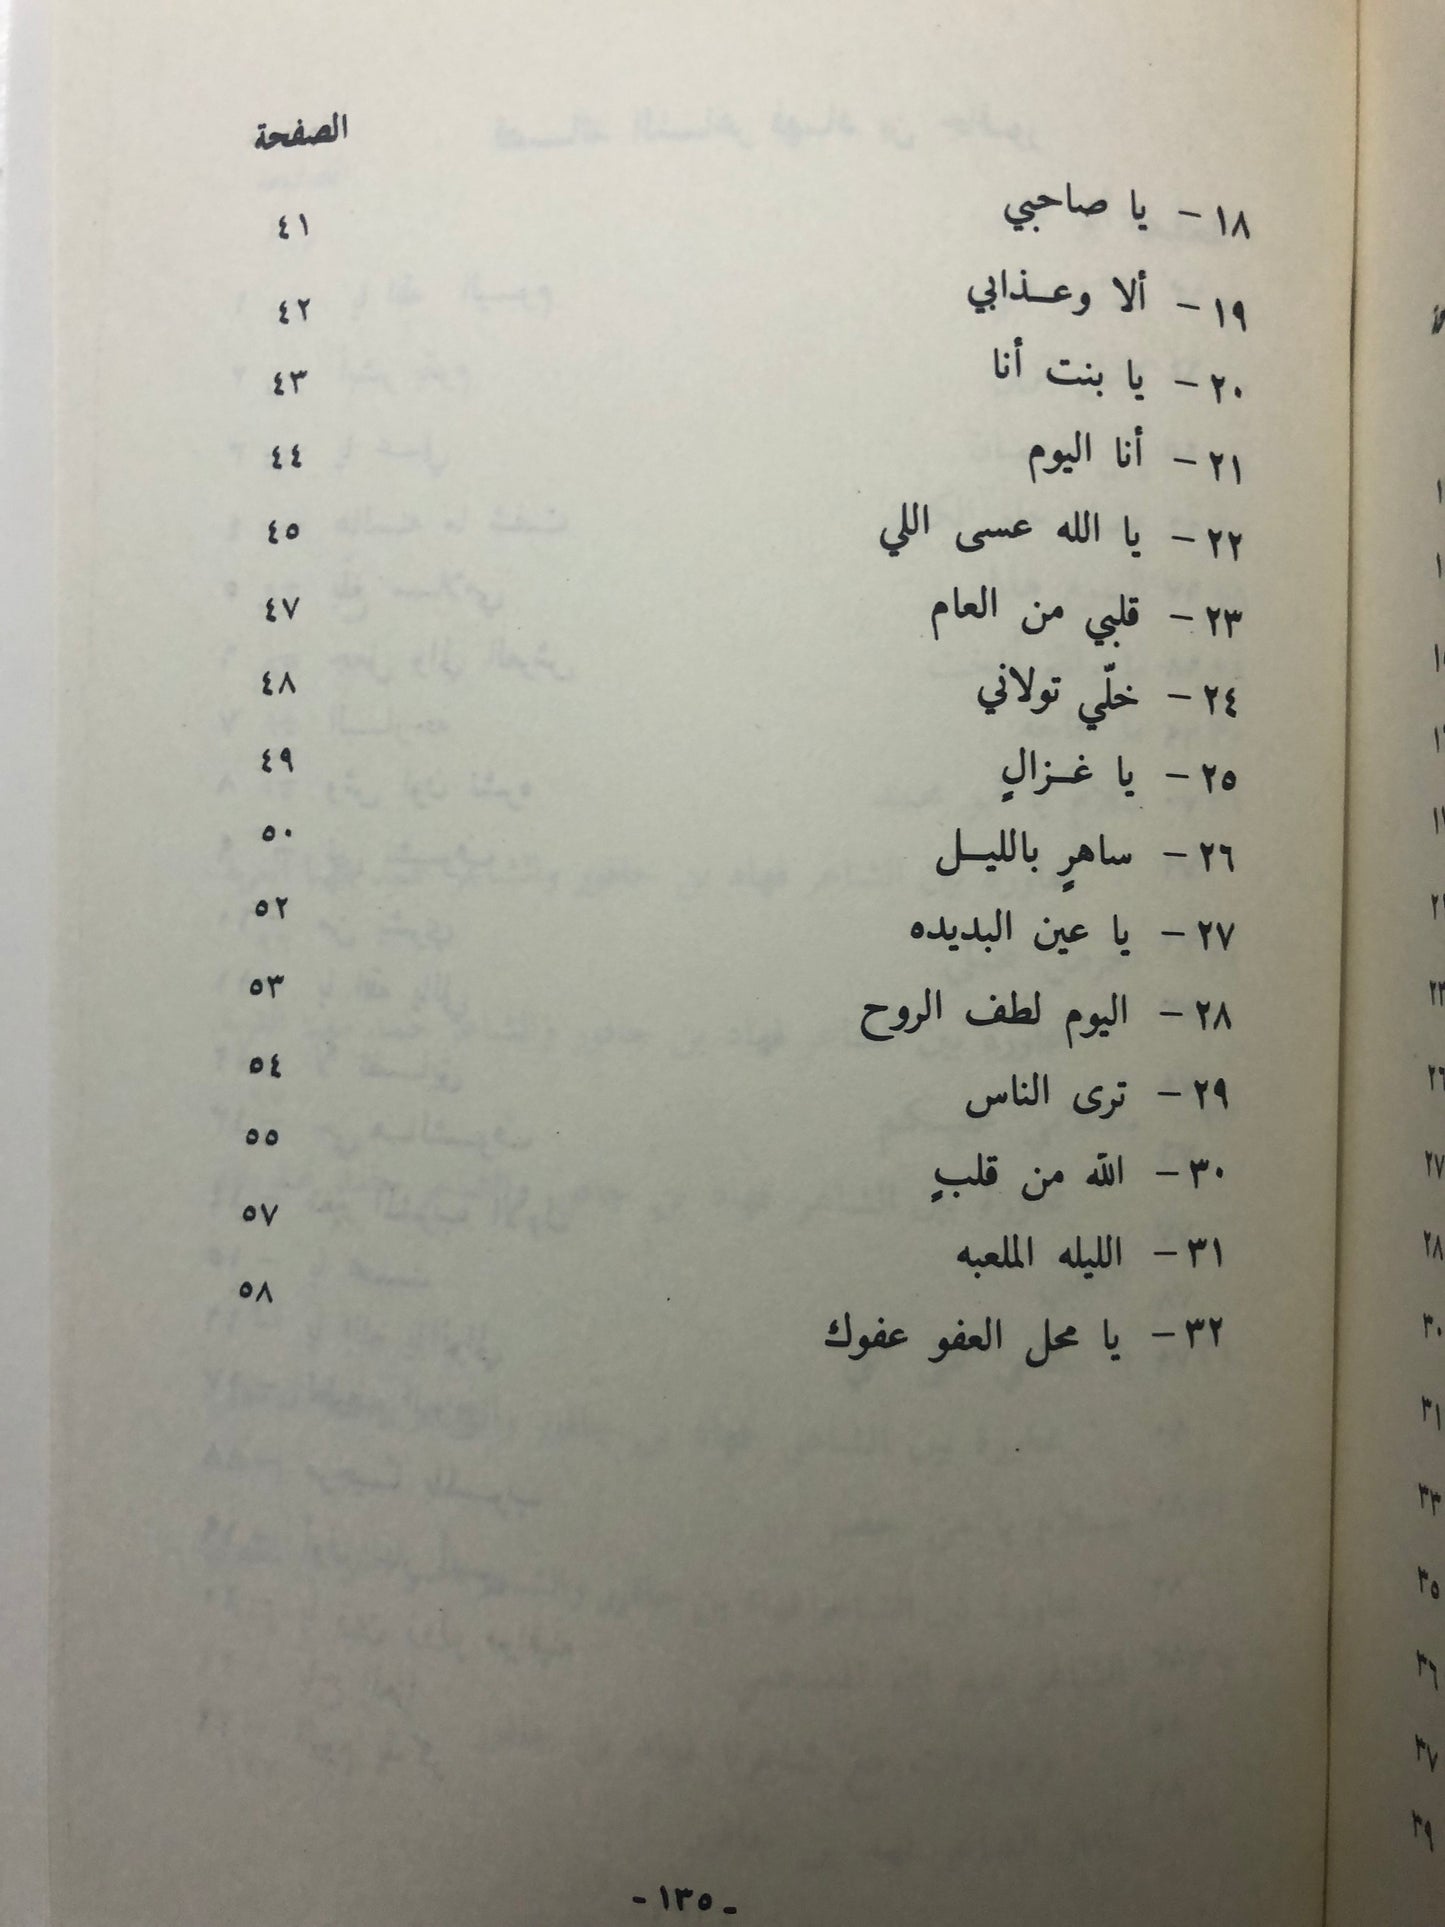 الصفحة
١٨ – يا صاحبي ٤١
١٩ – ألا وعـذابي ٤٢
٢٠ – يا بنت أنا ٤٣
٢١ – أنا اليوم ٤٤
٢٢ – يا الله عسى اللي ٤٥
٢٣ – قلبي من العام ٤٧
٢٤ – خلّي تولاني ٤٨
٢٥ – يا غـزالٍ ٤٩
٢٦ – ساهرٍ بالليـل ٥٠
٢٧ – يا عين البديده ٥٢
٢٨ – اليوم لطف الروح ٥٣
٢٩ – ترى الناس ٥٤
٣٠ – الله من قلبٍ ٥٥
٣١ – الليله الملعبه ٥٧
٣٢ – يا محل العفو عفوك ٥٨
- ١٣٥ -